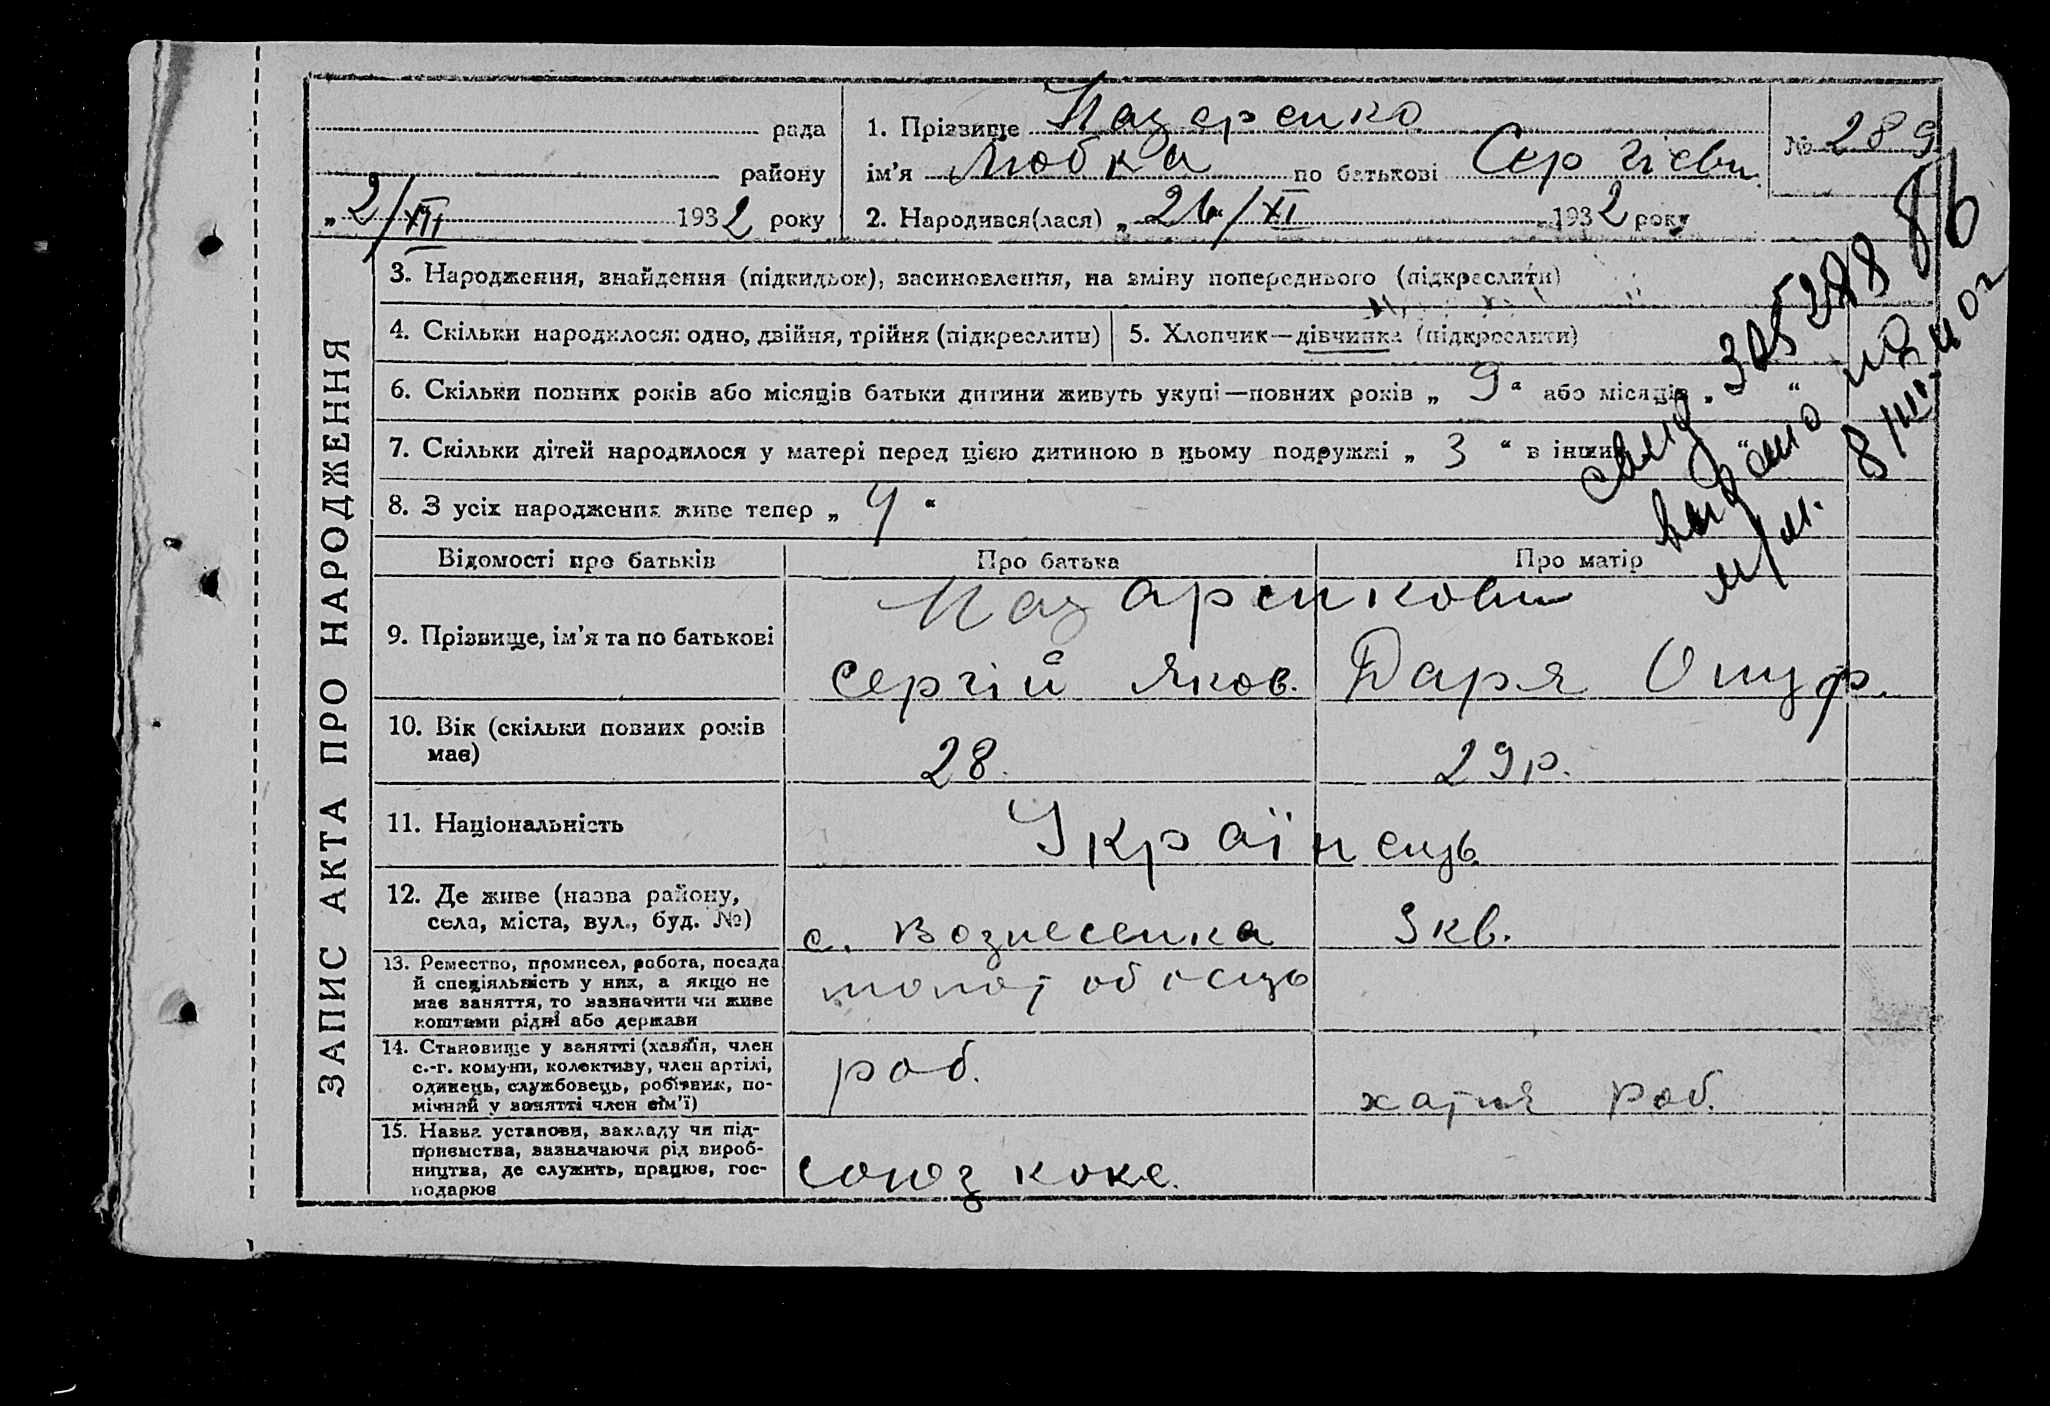 рада
району
„ 2/XII 1932 року
1. Прізвище Назаренко
ім’я Любка по батькові Сергіевн.
2. Народився(лася) „ 26/XI 1932 року
№ 289
ЗАПИС АКТА ПРО НАРОДЖЕННЯ
3. Народження, знайдення (підкидьок), засиновлення, на зміну попереднього (підкреслити)
4. Скільки народилося: одно, двійня, трійня (підкреслити) 5. Хлопчик—дівчинка (підкреслити)
6. Скільки повних років або місяців батьки дитини живуть укупі—повних років „ 9 “ або місяців „ “
7. Скільки дітей народилося у матері перед цією дитиною в цьому подружжі „ 3 “ в інших “
8. З усіх народжених живе тепер „ 4 “
Відомості про батьків Про батька Про матір
9. Прізвище, ім’я та по батькові
Назаренкови
Сергій Яков. Даря Онуф.
10. Вік (скільки повних років
має)
28. 29 р.
11. Національність
Українець
12. Де живе (назва району,
села, міста, вул., буд. №)
с. Вознесенка кв.
13. Ремество, промисел, робота, посада
й спеціяльність у них, а якщо не
має заняття, то зазначити чи живе
коштами рідні або держави
14. Становище у занятті (хазяїн, член
с.-г. комуни, колективу, член артілі,
одинець, службовець, робітник, по-
мічний у занятті член сім’ї)
роб. хатня роб.
15. Назва установи, закладу чи під-
приємства, зазначаючи рід вироб-
ництва, де служить, працює, гос-
подарює
союз кокс.